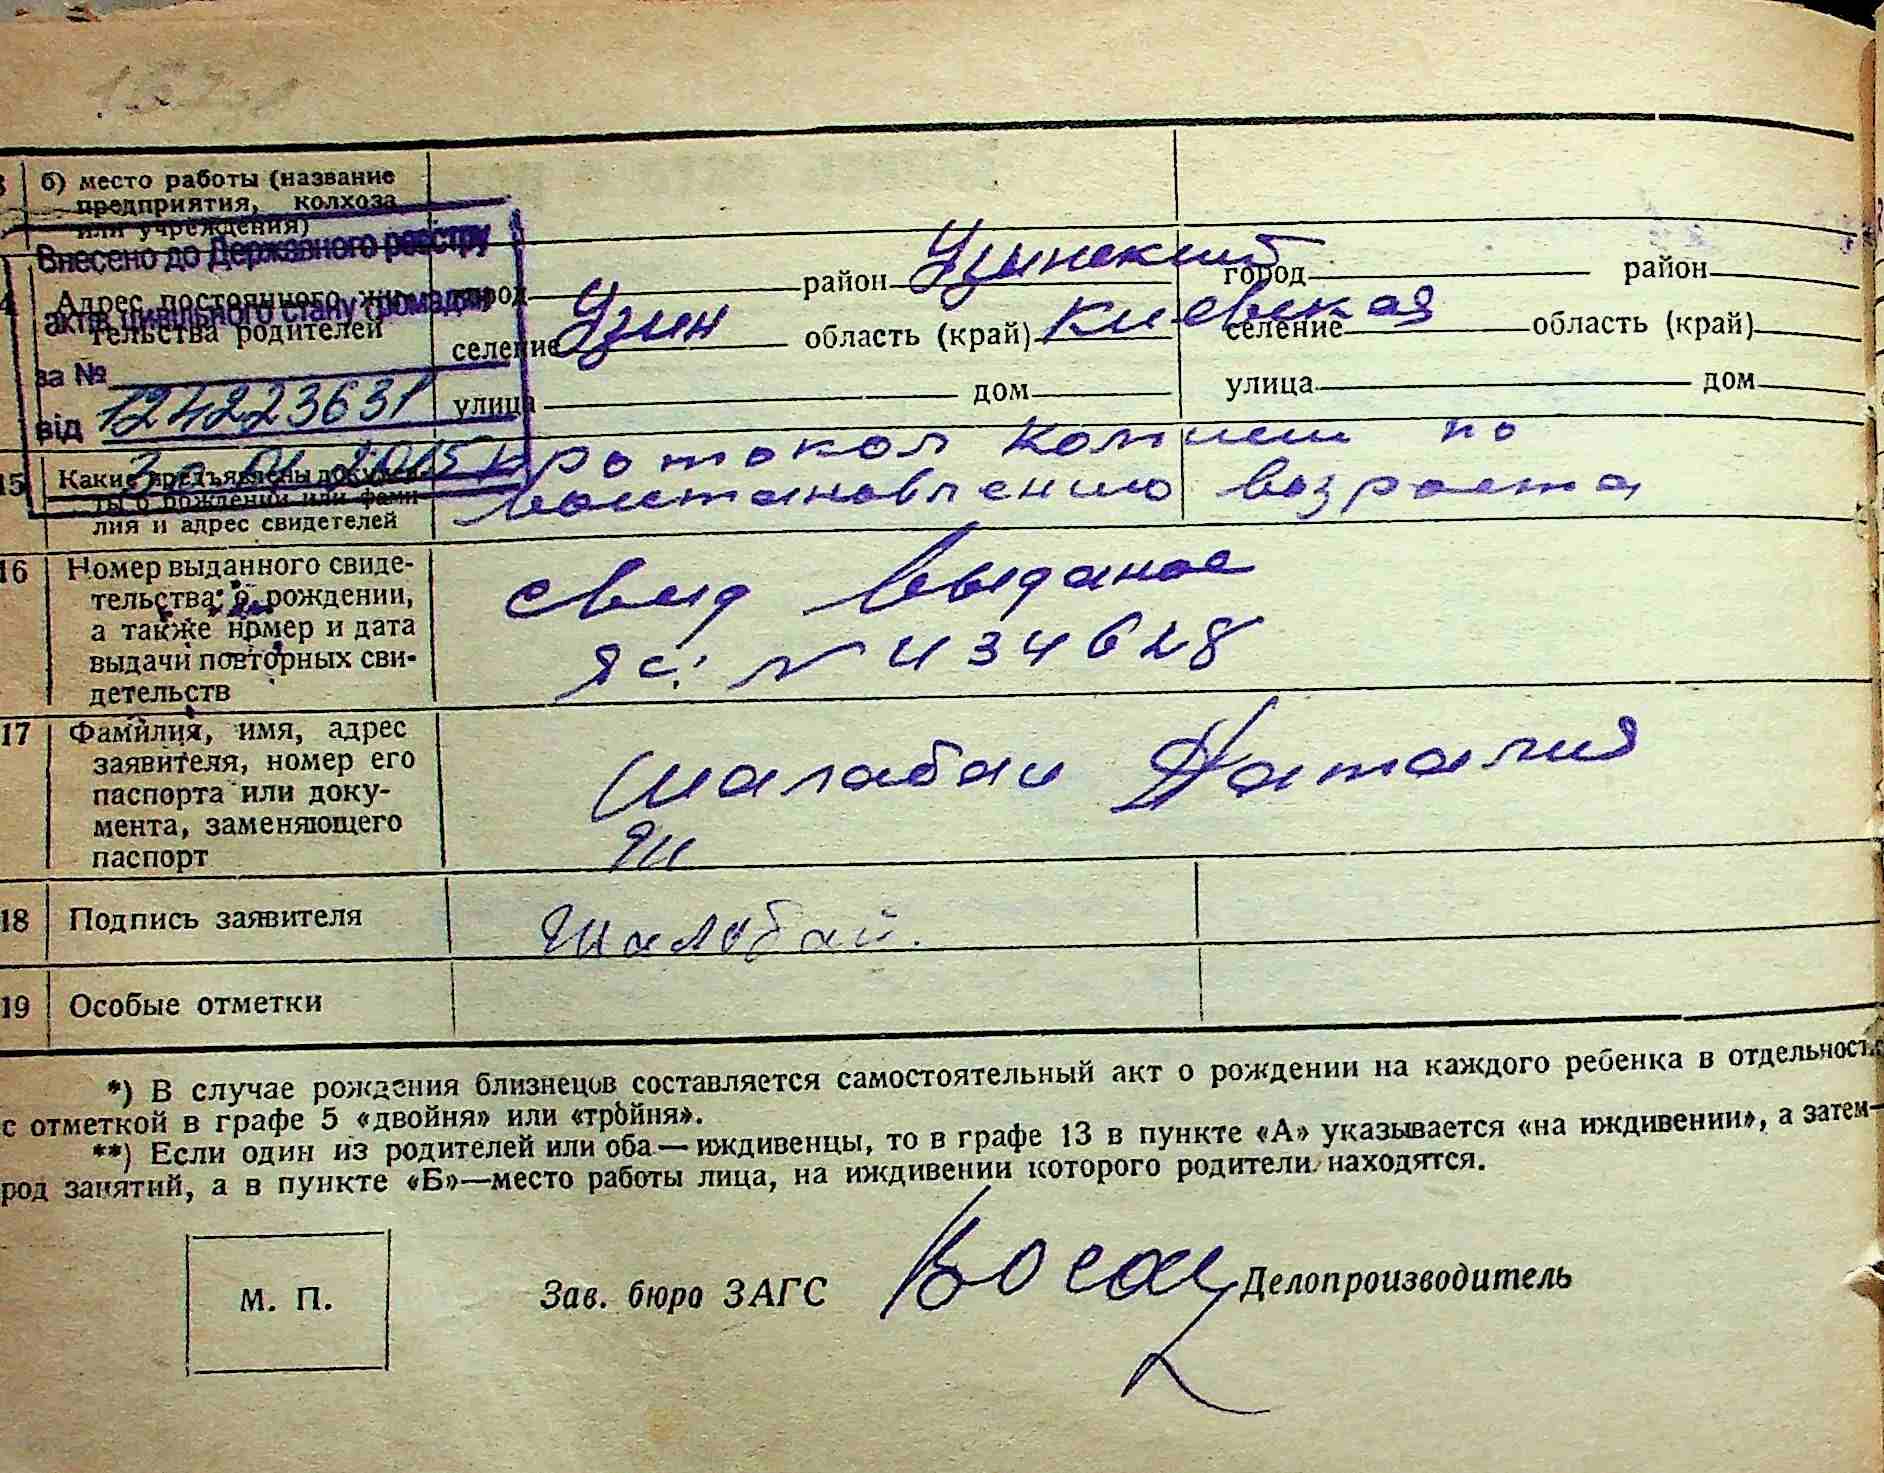 б) место работы (название
предприятия, колхоза
или учреждения)
Внесено до Державного реєстру
актів цивільного стану громадян
за №
124223631
від
30 01 2015
Адрес постоянного жи-
тельства родителей
город район Узинский
селение Узин область (край) Киевская
улица дом
город район
селение область (край)
улица дом
15 Какие предъявлены докумен-
ты о рождении или фами-
лия и адрес свидетелей
протокол комисии по
востановлению возроста
16 Номер выданного свиде-
тельства о рождении,
а также номер и дата
выдачи повторных сви-
детельств
свид выданое
ЯС: N 434628
17 Фамилия, имя, адрес
заявителя, номер его
паспорта или доку-
мента, заменяющего
паспорт
Шалабай Наталия
18 Подпись заявителя
Шалобай.
19 Особые отметки
*) В случае рождения близнецов составляется самостоятельный акт о рождении на каждого ребенка в отдельности
с отметкой в графе 5 «двойня» или «тройня».
**) Если один из родителей или оба—иждивенцы, то в графе 13 в пункте «А» указывается «на иждивении», а затем—
род занятий, а в пункте «Б»—место работы лица, на иждивении которого родители находятся.
М. П.
Зав. бюро ЗАГС
Делопроизводитель